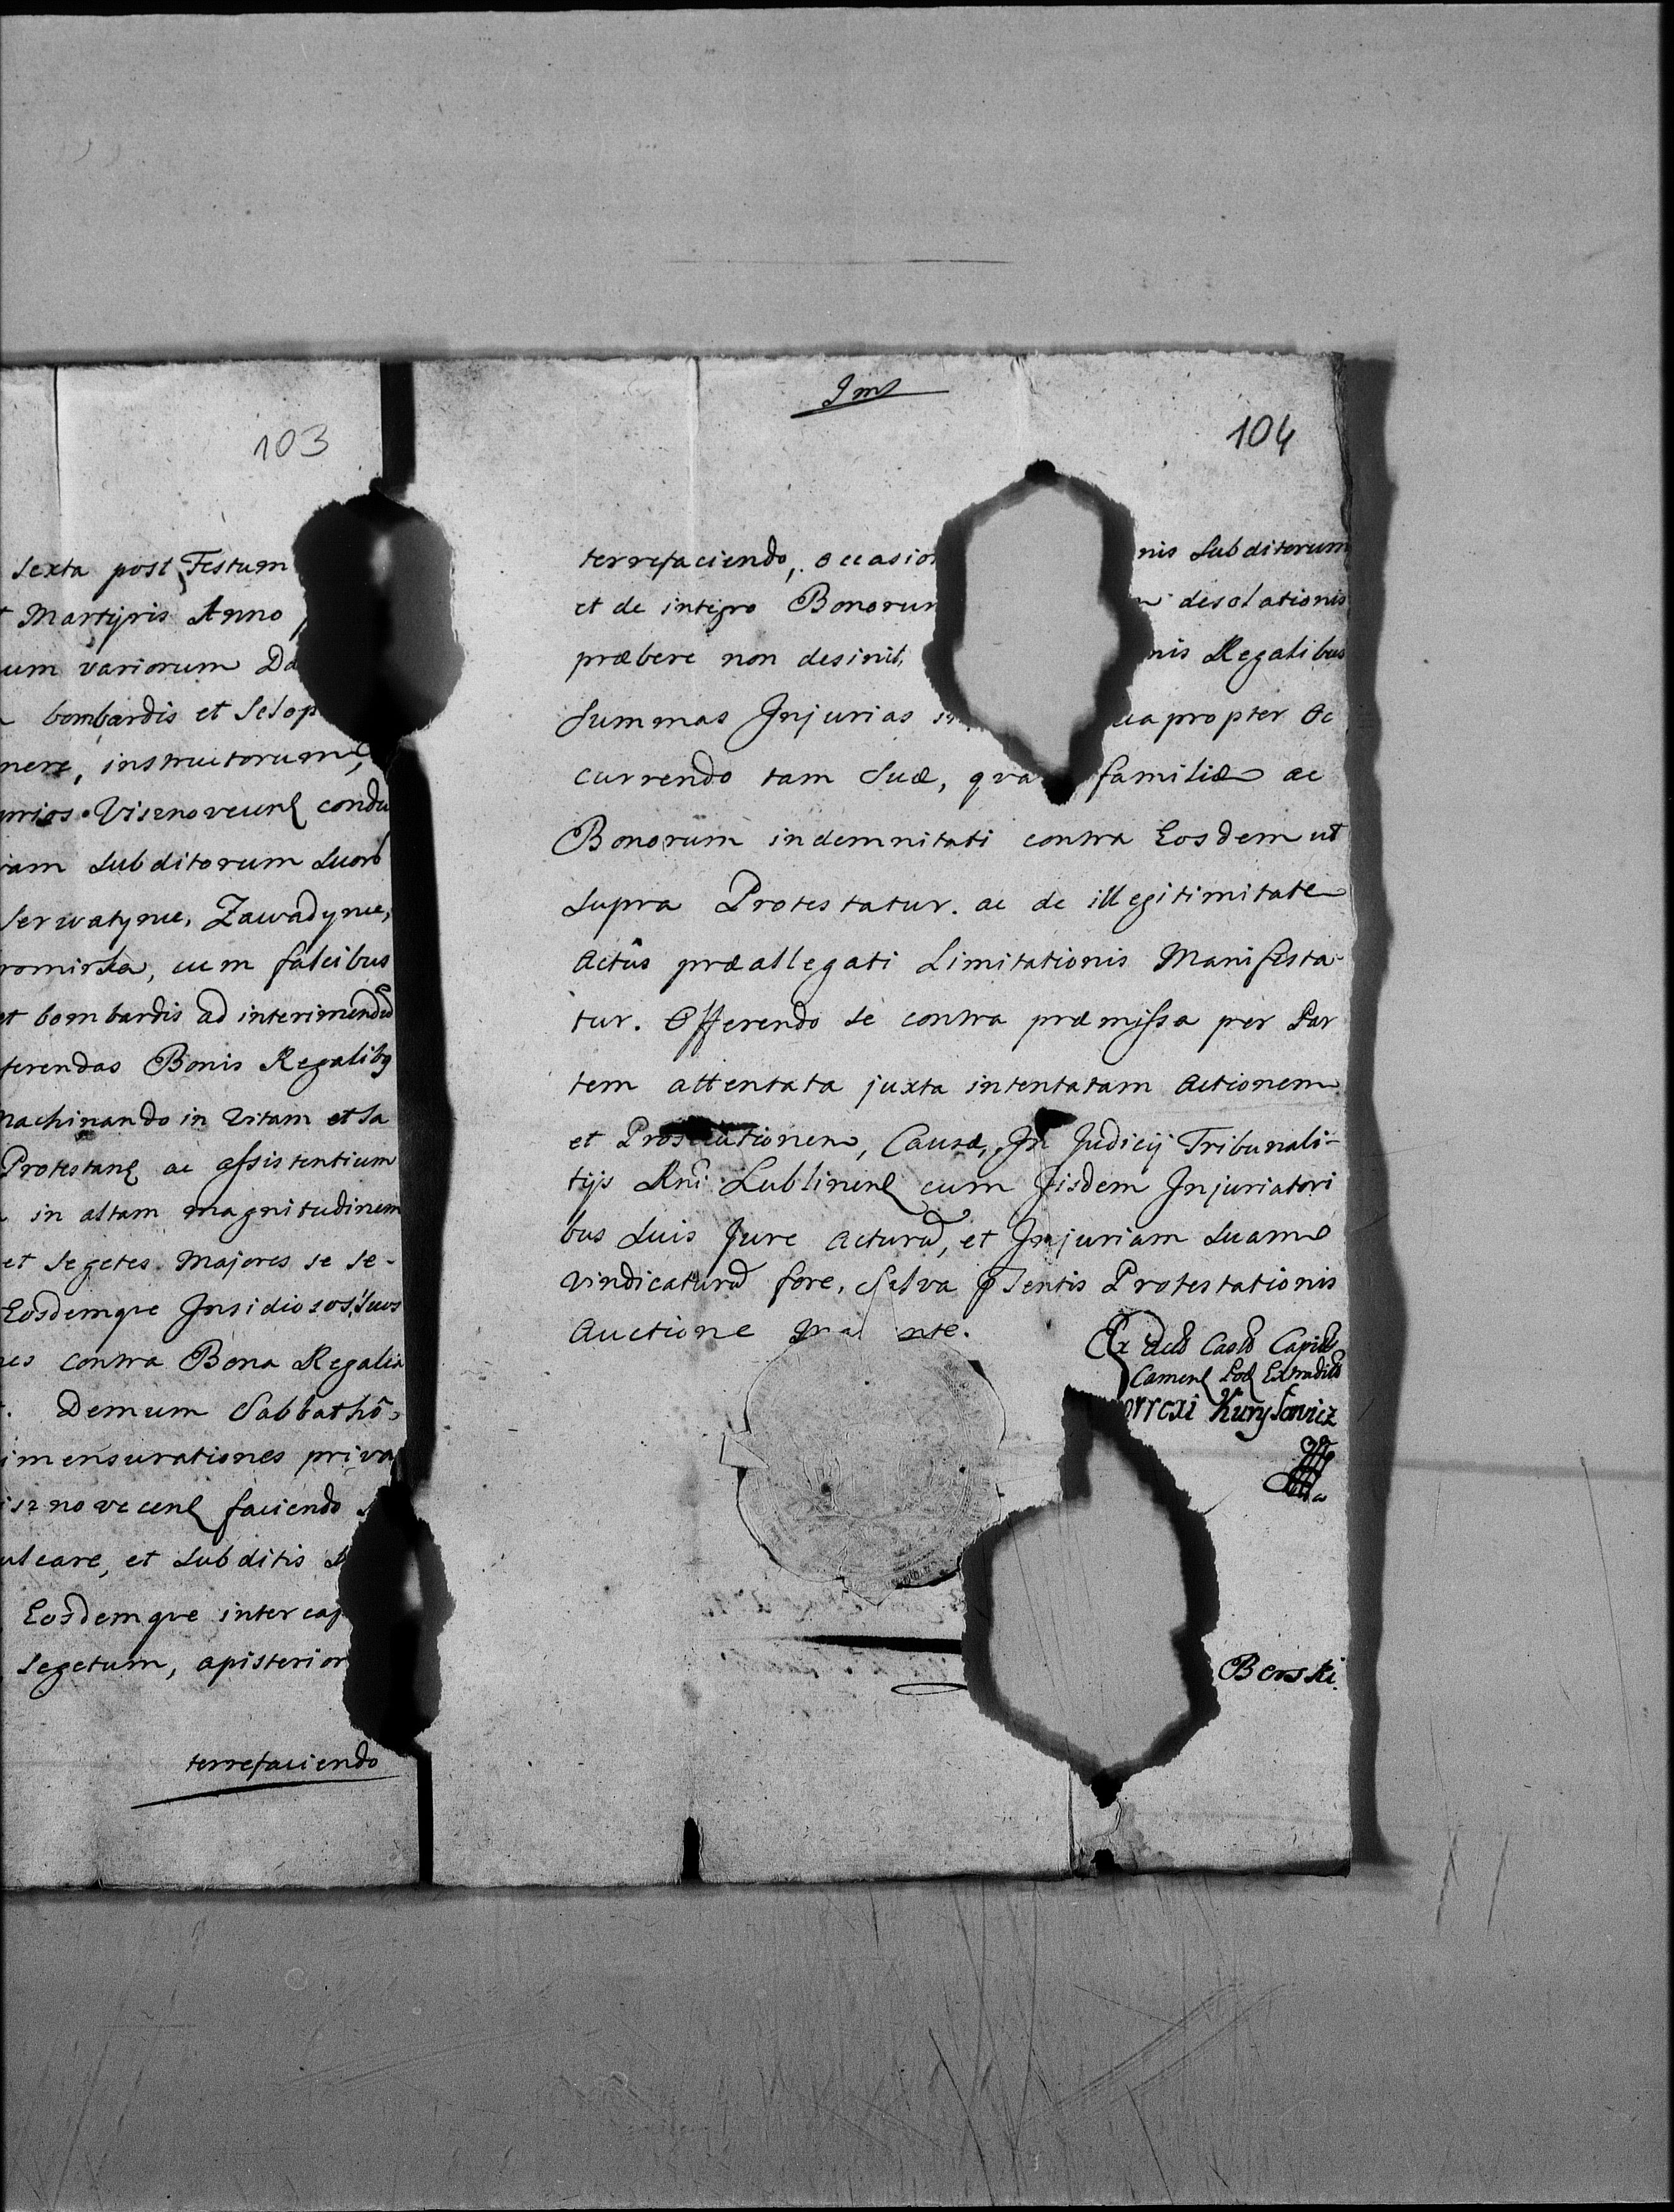 103
Sexta post Festum
Martyris Anno
um variorum
bombardis et Sclop
nere, instructorum,
condu
iam Subditorum Suorũ
Serwatynie, Zawadynie,
cum falcibus
et bombardis ad interimendũ
ferendas Bonis Regalibq
machinando in vitam et sa
Protestanꝭ ac assistentium
in altam magnitudinem
et segetes Majores se se-
Eosdemque Insidiosos suos
nes contra Bona Regalia
Demum Sabbathô
imensurationes priva
faciendo
ulcare, et Subditis
Eosdemque intercap
Segetum, apisterior
terrefaciendo
104
terrefaciendo, occasion nis Subditorum
et de integro Bonorum desolationis
præbere non desinit, nis Regalibus
Summas Injurias ua propter oc
currendo tam Suæ, qua familiæ ac
Bonorum indemnitati contra Eosdem ut
supra Protestatur. ac de illegitimitate
Actûs præallegati Limitationis Manifesta-
tur. Offerendo se contra præmissa per Par
tem attentata juxta intentatam Actionem
et Prosecutionem, Causæ, In Judicij Tribunali-
tijs Rni Lublinenꝭ cum Iisdem Injuriatori
bus Suis Jure acturũ, et Injuriam Suam
vindicaturũ fore, Salva pntis Protestationis
Auctione
Ex Actis Castr Capit
Camenꝭ Pod Extradit
orrexi Kurysowicz
Berski